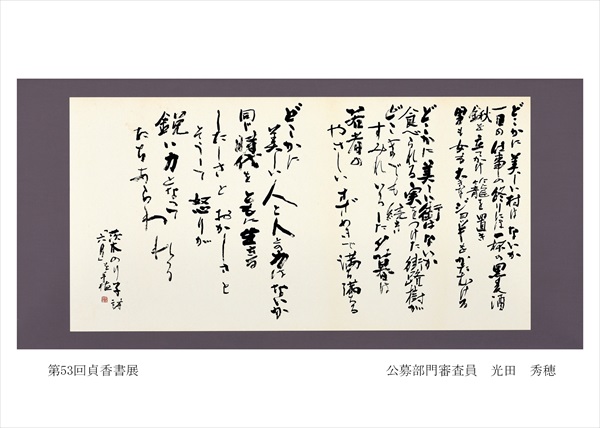 どこかに美しい村はないか
一日の仕事の終りには一杯の黒麦酒
鍬を立てかけ籠を置き
男も女も大きなジョッキをかたむける
どこかに美しい街はないか
食べられる実をつけた街路樹が
どこまでも続き
すみれいろした夕暮は
若者の
やさしいさざめきで満ち満ちる
どこかに
美しい人と人との力はないか
同じ時代をともに生きる
したしさとおかしさと
そうして怒りが
鋭い力となって
たちあらわれる
茨木のり子詩
「六月」を 秀穂
第53回貞香書展
公募部門審査員 光田 秀穂